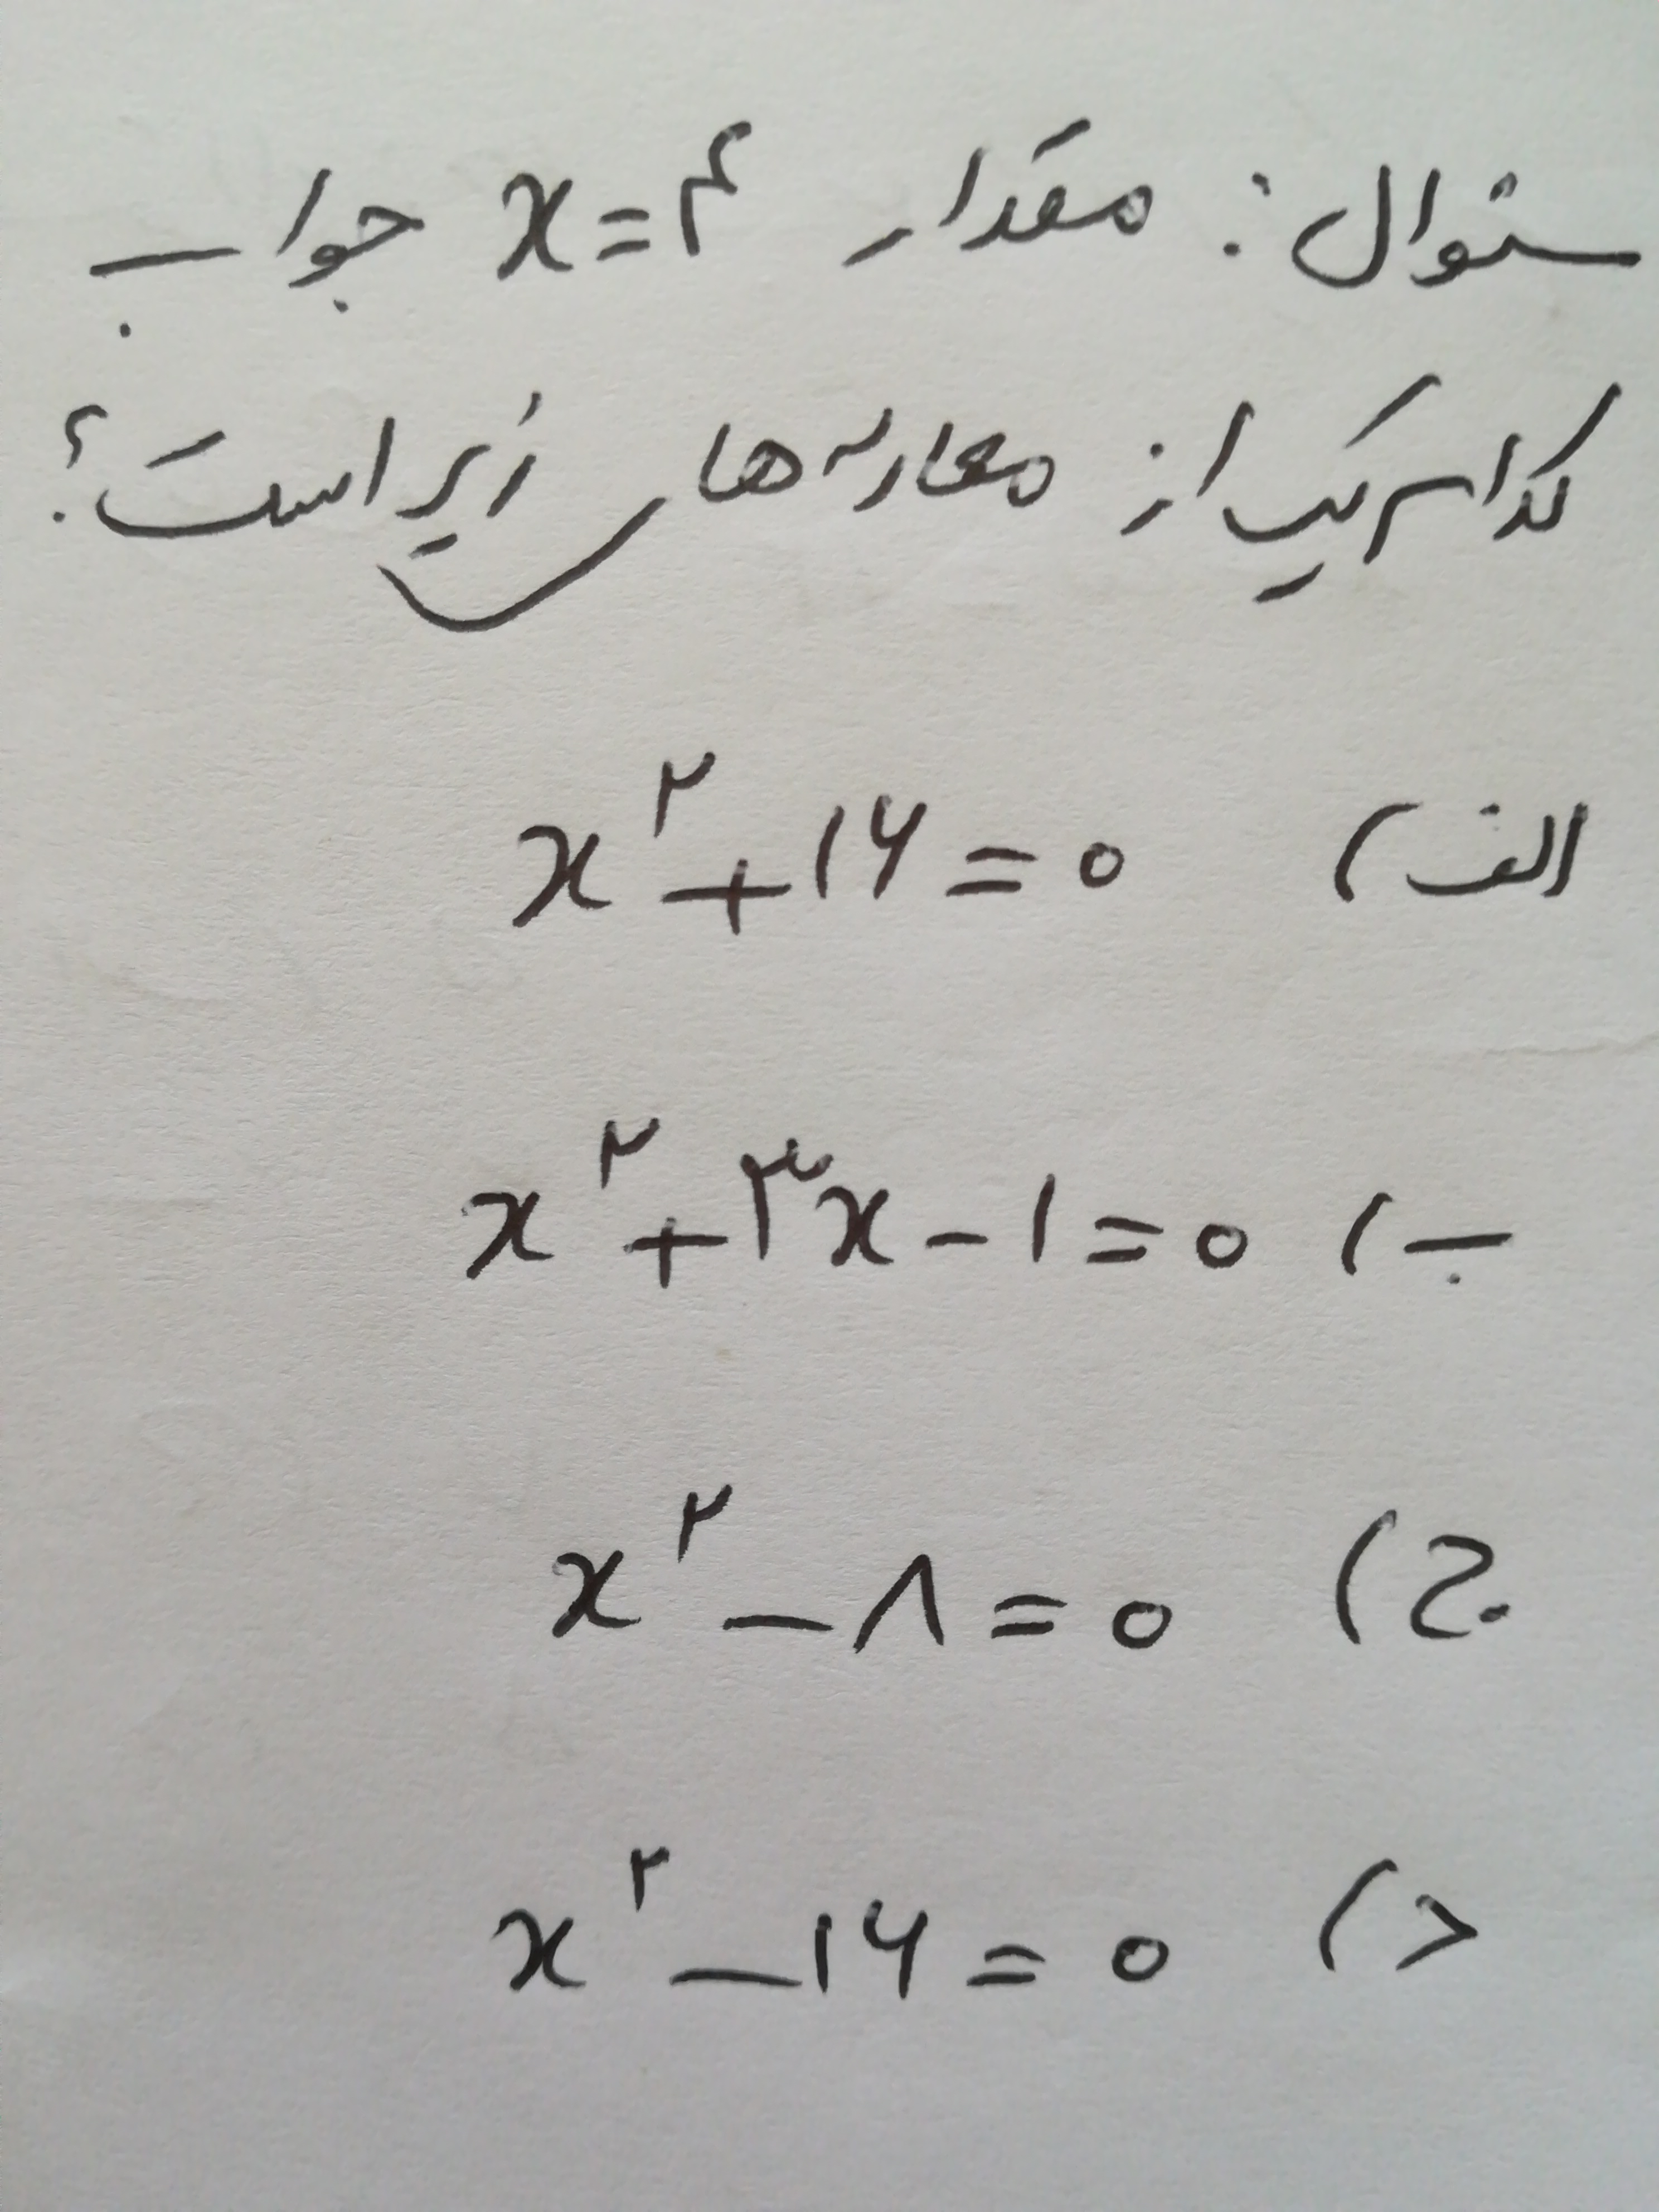 سئوال: مقدار x=۴ جواب
کدام یک از معادله های زیر است؟
الف) x²+۱۶=۰
ب) x²+۳x-۱=۰
ج) x²-۸=۰
د) x²-۱۶=۰